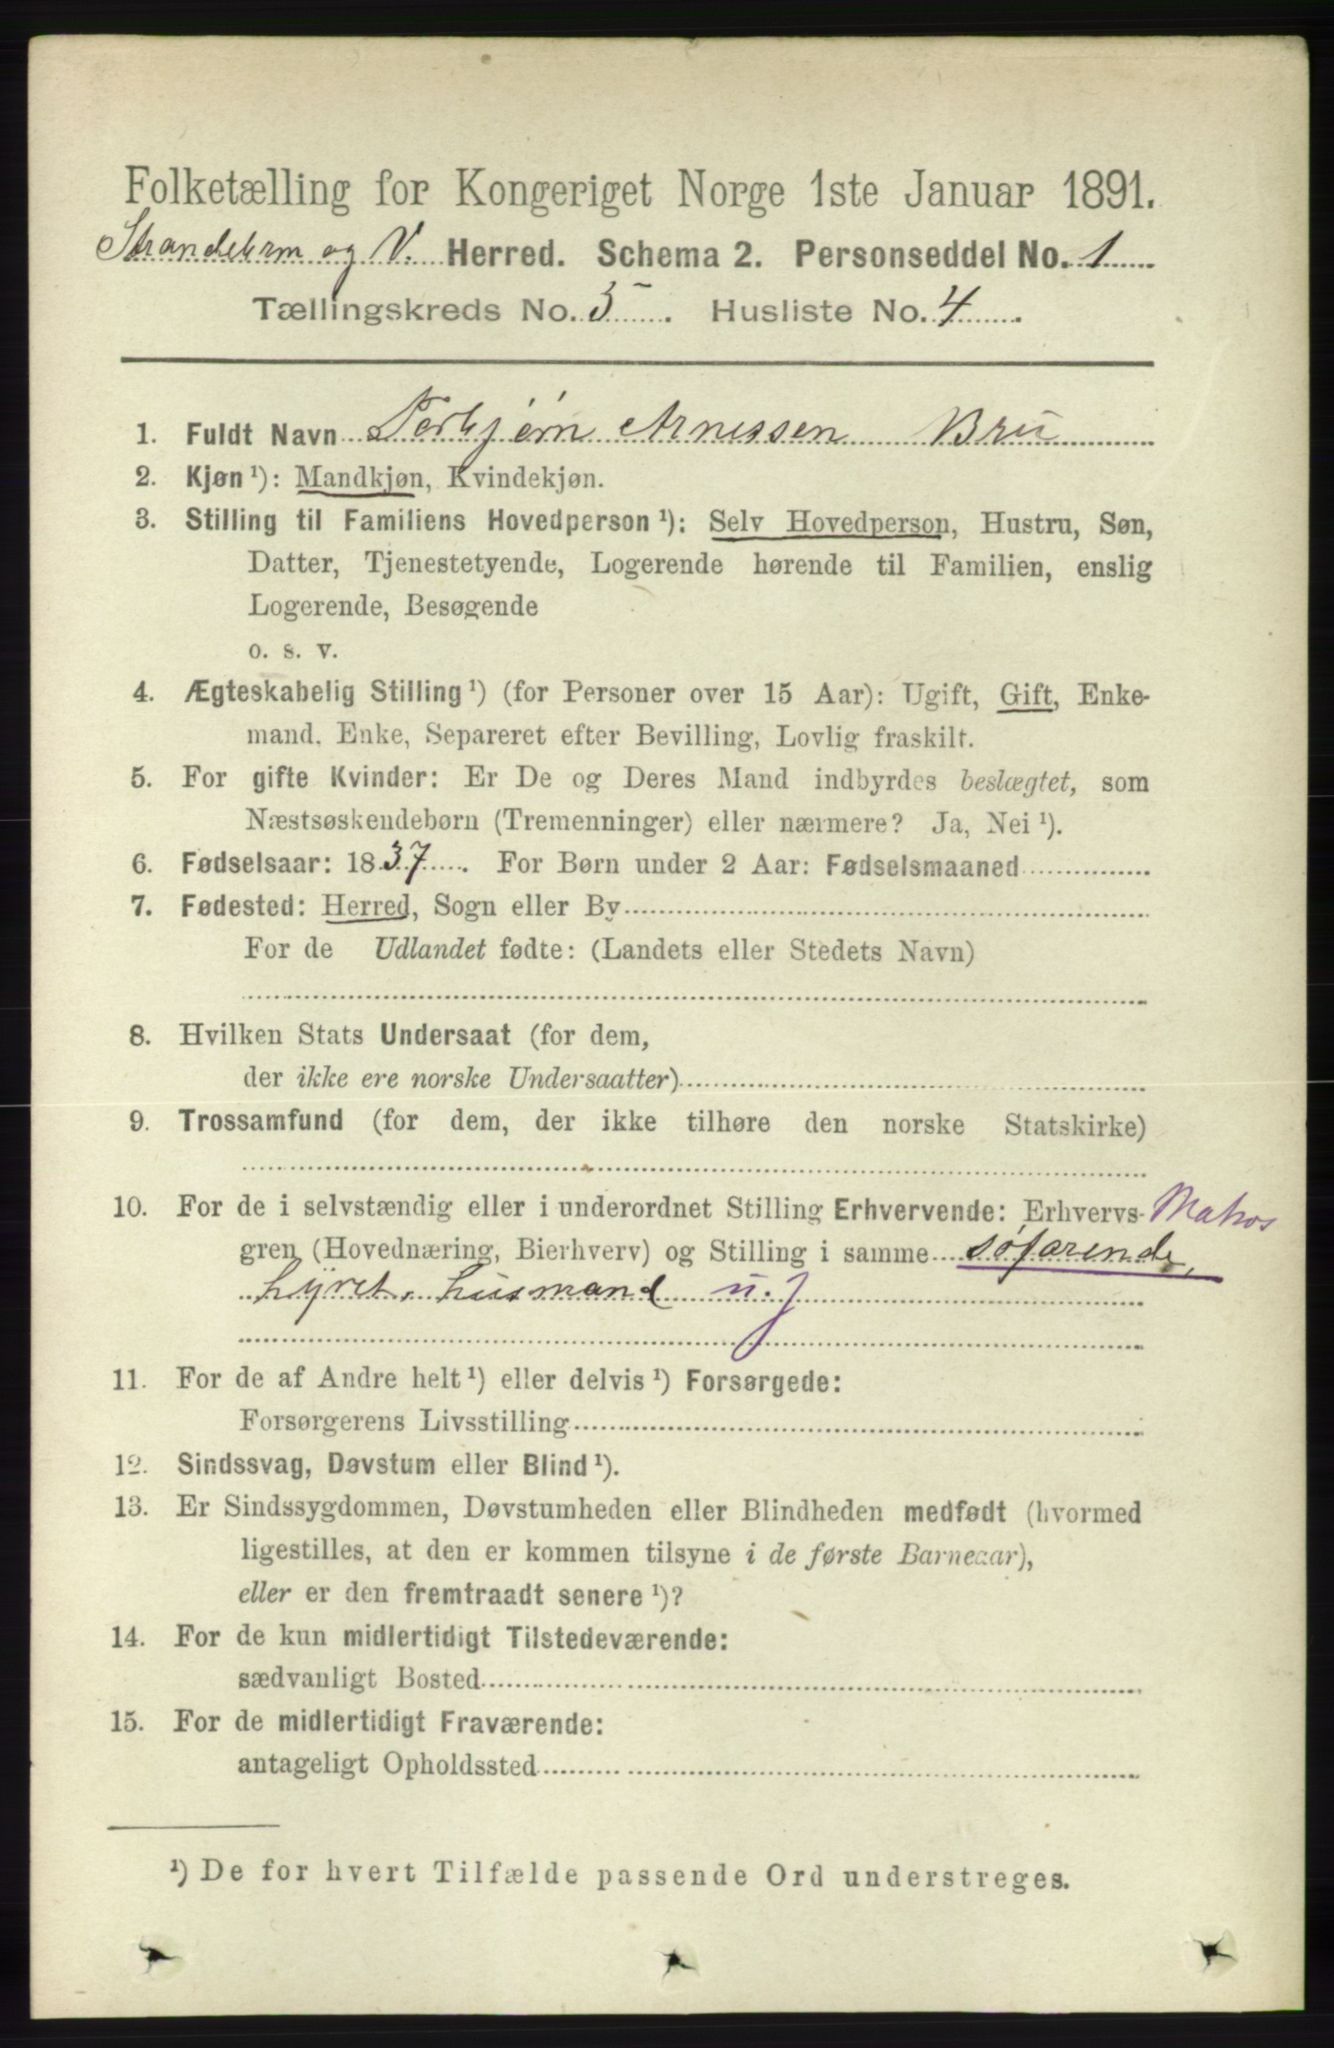 Folketælling for Kongeriget Norge 1ste Januar 1891.
Strandebarm og V. Herred. Schema 2. Personseddel No. 1
Tællingskreds No. 5. Husliste No. 4.
1. Fuldt Navn Torbjørn Arnessen Bru
2. Kjøn ¹): Mandkjøn, Kvindekjøn.
3. Stilling til Familiens Hovedperson ¹): Selv Hovedperson, Hustru, Søn,
Datter, Tjenestetyende, Logerende hørende til Familien, enslig
Logerende, Besøgende
o. s. v.
4. Ægteskabelig Stilling ¹) (for Personer over 15 Aar): Ugift, Gift, Enke-
mand, Enke, Separeret efter Bevilling, Lovlig fraskilt.
5. For gifte Kvinder: Er De og Deres Mand indbyrdes beslægtet, som
Næstsøskendebørn (Tremenninger) eller nærmere? Ja, Nei ¹).
6. Fødselsaar: 1837. For Børn under 2 Aar: Fødselsmaaned
7. Fødested: Herred, Sogn eller By
For de Udlandet fødte: (Landets eller Stedets Navn)
8. Hvilken Stats Undersaat (for dem,
der ikke ere norske Undersaatter)
9. Trossamfund (for dem, der ikke tilhøre den norske Statskirke)
10. For de i selvstændig eller i underordnet Stilling Erhvervende: Erhvervs- Matros
gren (Hovednæring, Bierhverv) og Stilling i samme søfarende,
hyret, husmand u. J
11. For de af Andre helt ¹) eller delvis ¹) Forsørgede:
Forsørgerens Livsstilling
12. Sindssvag, Døvstum eller Blind ¹).
13. Er Sindssygdommen, Døvstumheden eller Blindheden medfødt (hvormed
ligestilles, at den er kommen tilsyne i de første Barneaar),
eller er den fremtraadt senere ¹)?
14. For de kun midlertidigt Tilstedeværende:
sædvanligt Bosted
15. For de midlertidigt Fraværende:
antageligt Opholdssted
¹) De for hvert Tilfælde passende Ord understreges.